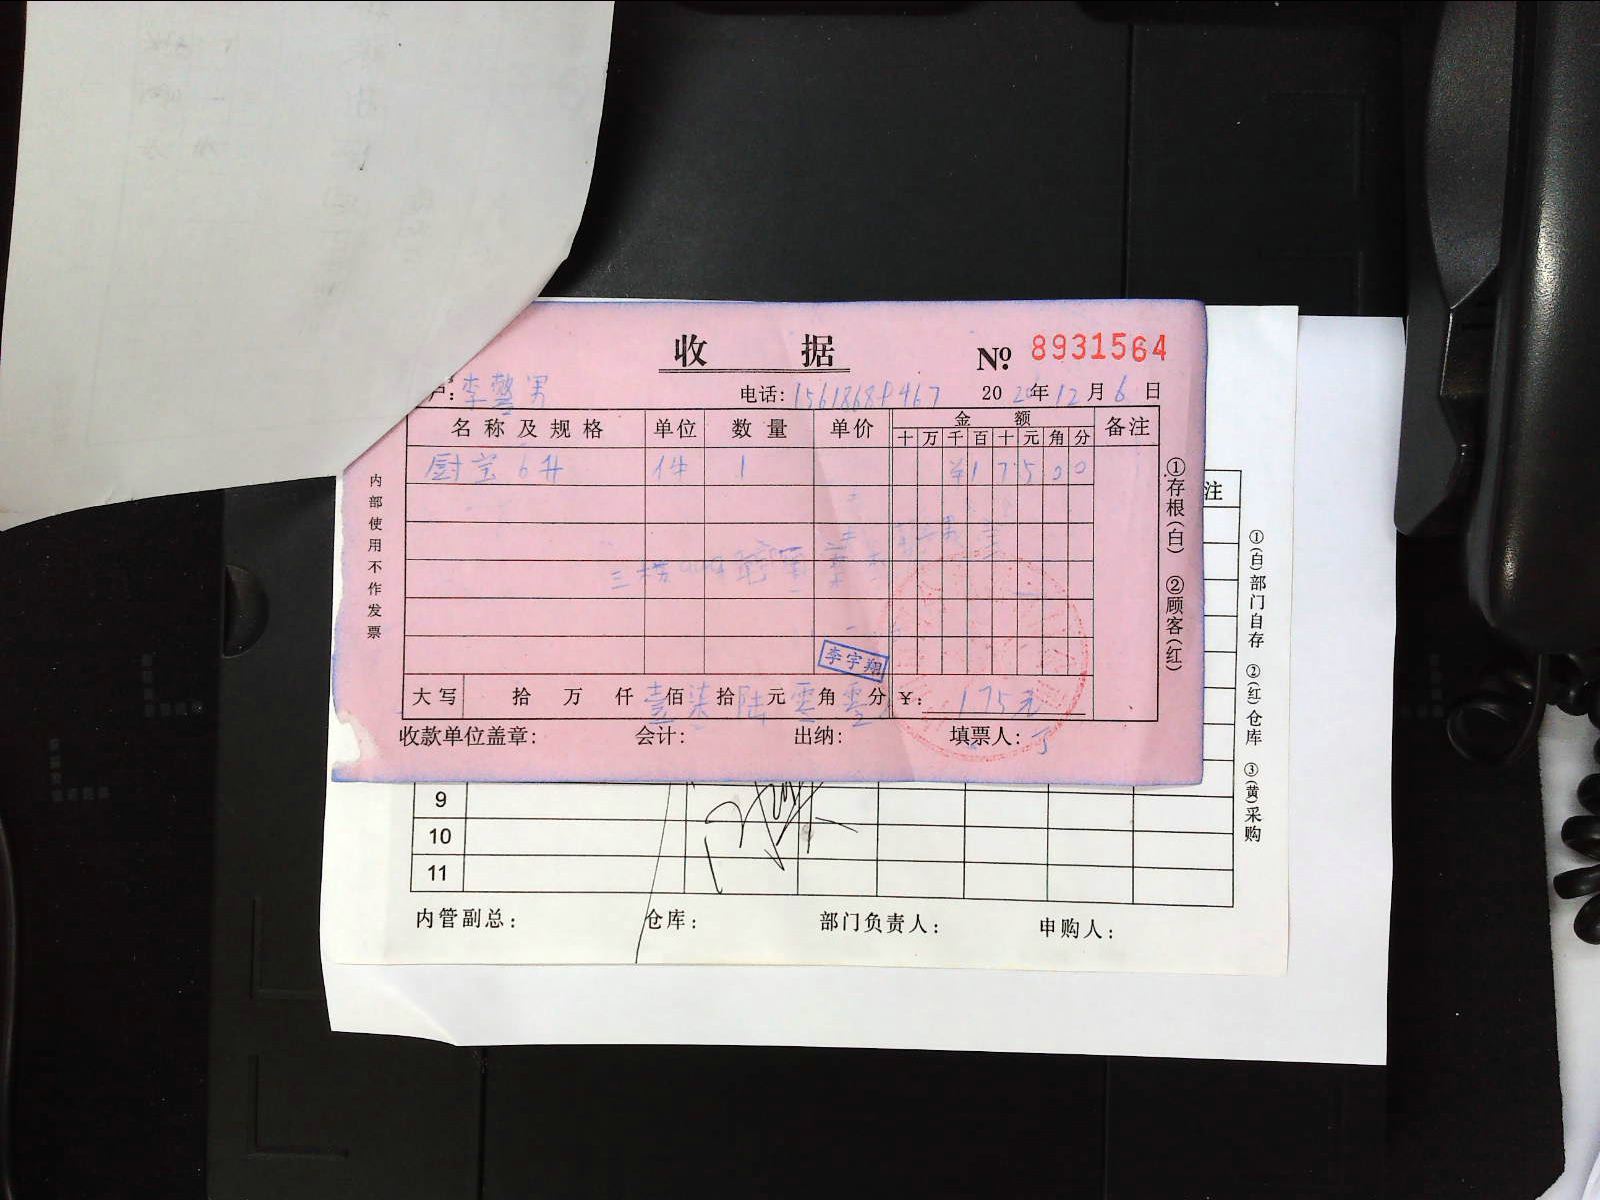 收 据 № 8931564
户：李馨男 电话：15618689467 2020年12月6日
名称及规格 单位 数量 单价 金额 备注
十 万 千 百 十 元 角 分
厨宝6升 件 1 ¥17500
李宇翔
大写 拾 万 仟 壹佰 柒拾 陆元 零角 零分 ¥：175元
收款单位盖章： 会计： 出纳： 填票人：
内部使用不作发票
①存根(白) ②顾客(红)
注
9
10
11
内管副总： 仓库： 部门负责人： 申购人：
①(白)部门自存 ②(红)仓库 ③(黄)采购